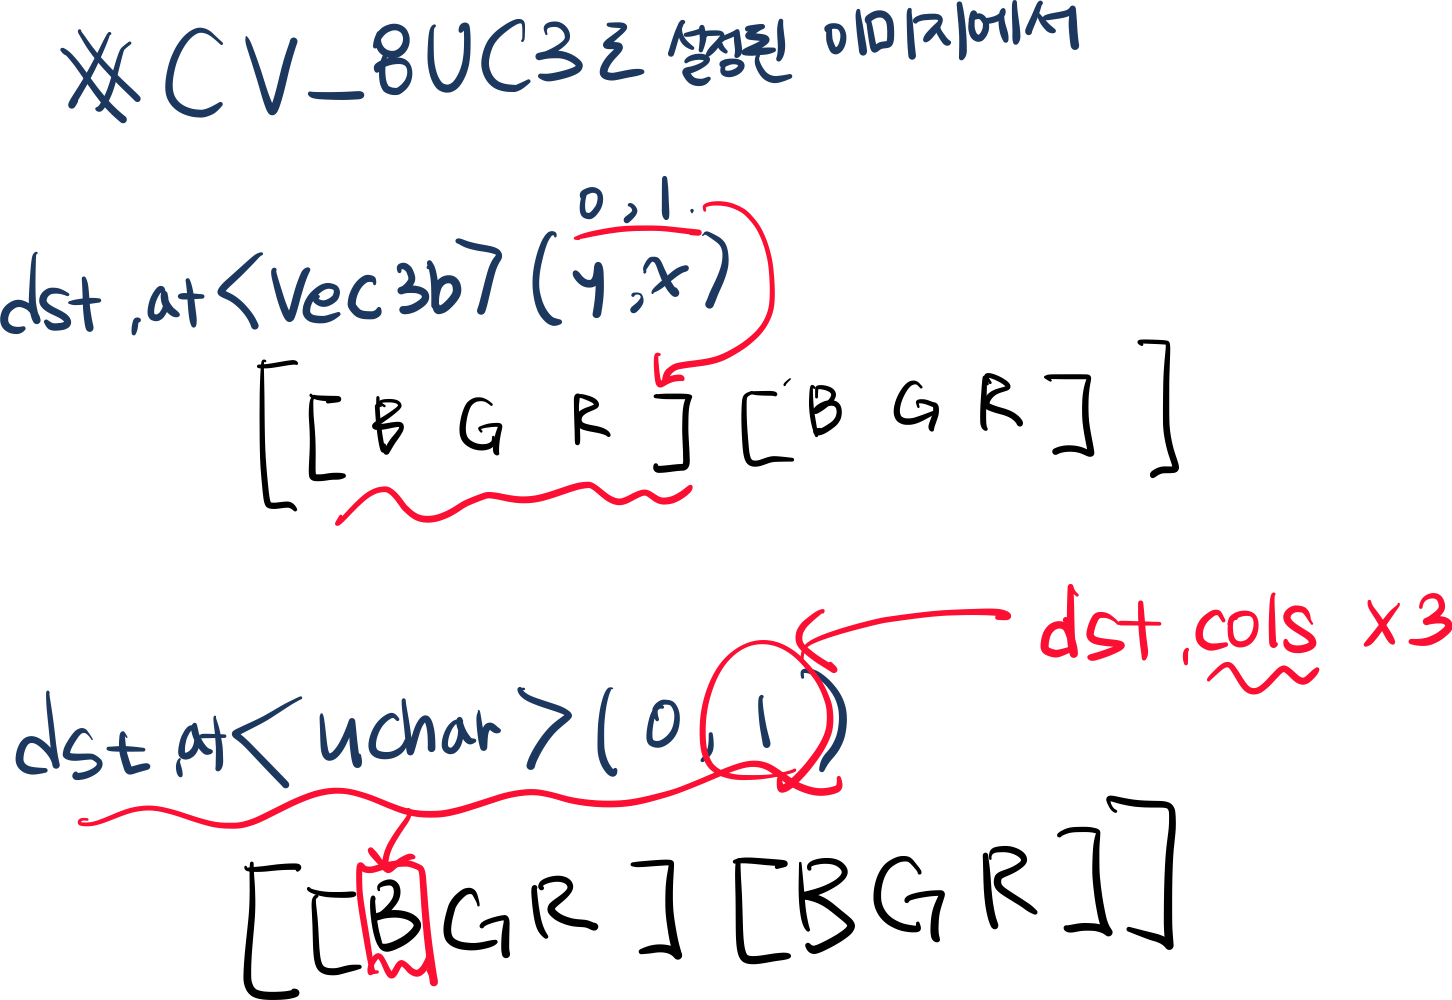 ※ CV_8UC3로 설정된 이미지에서
0, 1
dst.at<Vec3b>(y,x)
[[B G R] [B G R]]
dst.cols x3
dst.at<uchar>(0,1)
[[B G R] [B G R]]